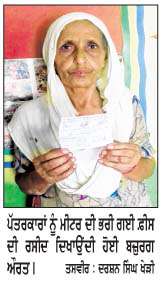 ਪੱਤਰਕਾਰਾਂ ਨੂੰ ਮੀਟਰ ਦੀ ਭਰੀ ਗਈ ਫ਼ੀਸ
ਦੀ ਰਸੀਦ ਦਿਖਾਉਂਦੀ ਹੋਈ ਬਜ਼ੁਰਗ
ਔਰਤ। ਤਸਵੀਰ : ਦਰਸ਼ਨ ਸਿੰਘ ਖੇੜੀ